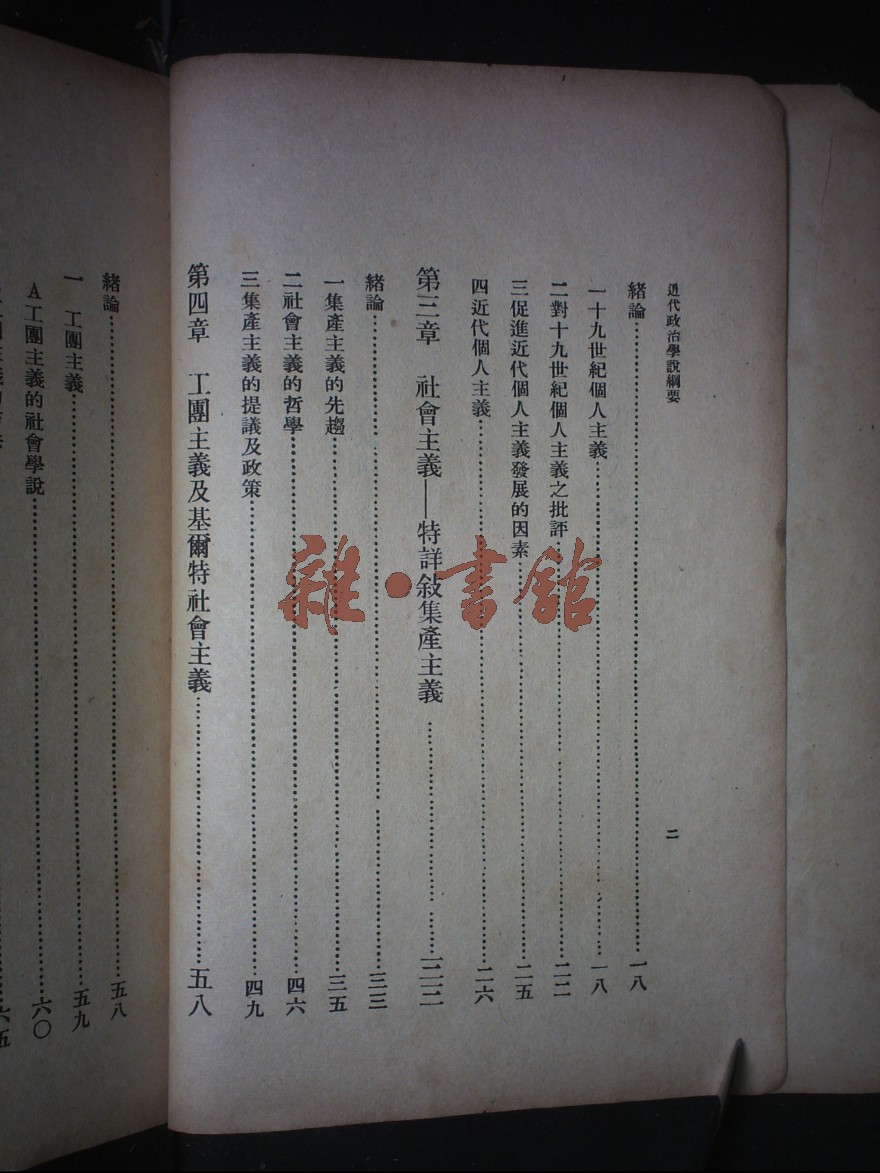 近代政治學說綱要
二
緒論……一八
一十九世紀個人主義……一八
二對十九世紀個人主義之批評……二二
三促進近代個人主義發展的因素……二五
四近代個人主義……二六
第三章 社會主義——特詳敍集產主義……三三
緒論……三三
一集產主義的先趨……三五
二社會主義的哲學……四六
三集產主義的提議及政策……四九
第四章 工團主義及基爾特社會主義……五八
緒論……五八
一 工團主義……五九
A工團主義的社會學說……六〇
六五
雜·書館